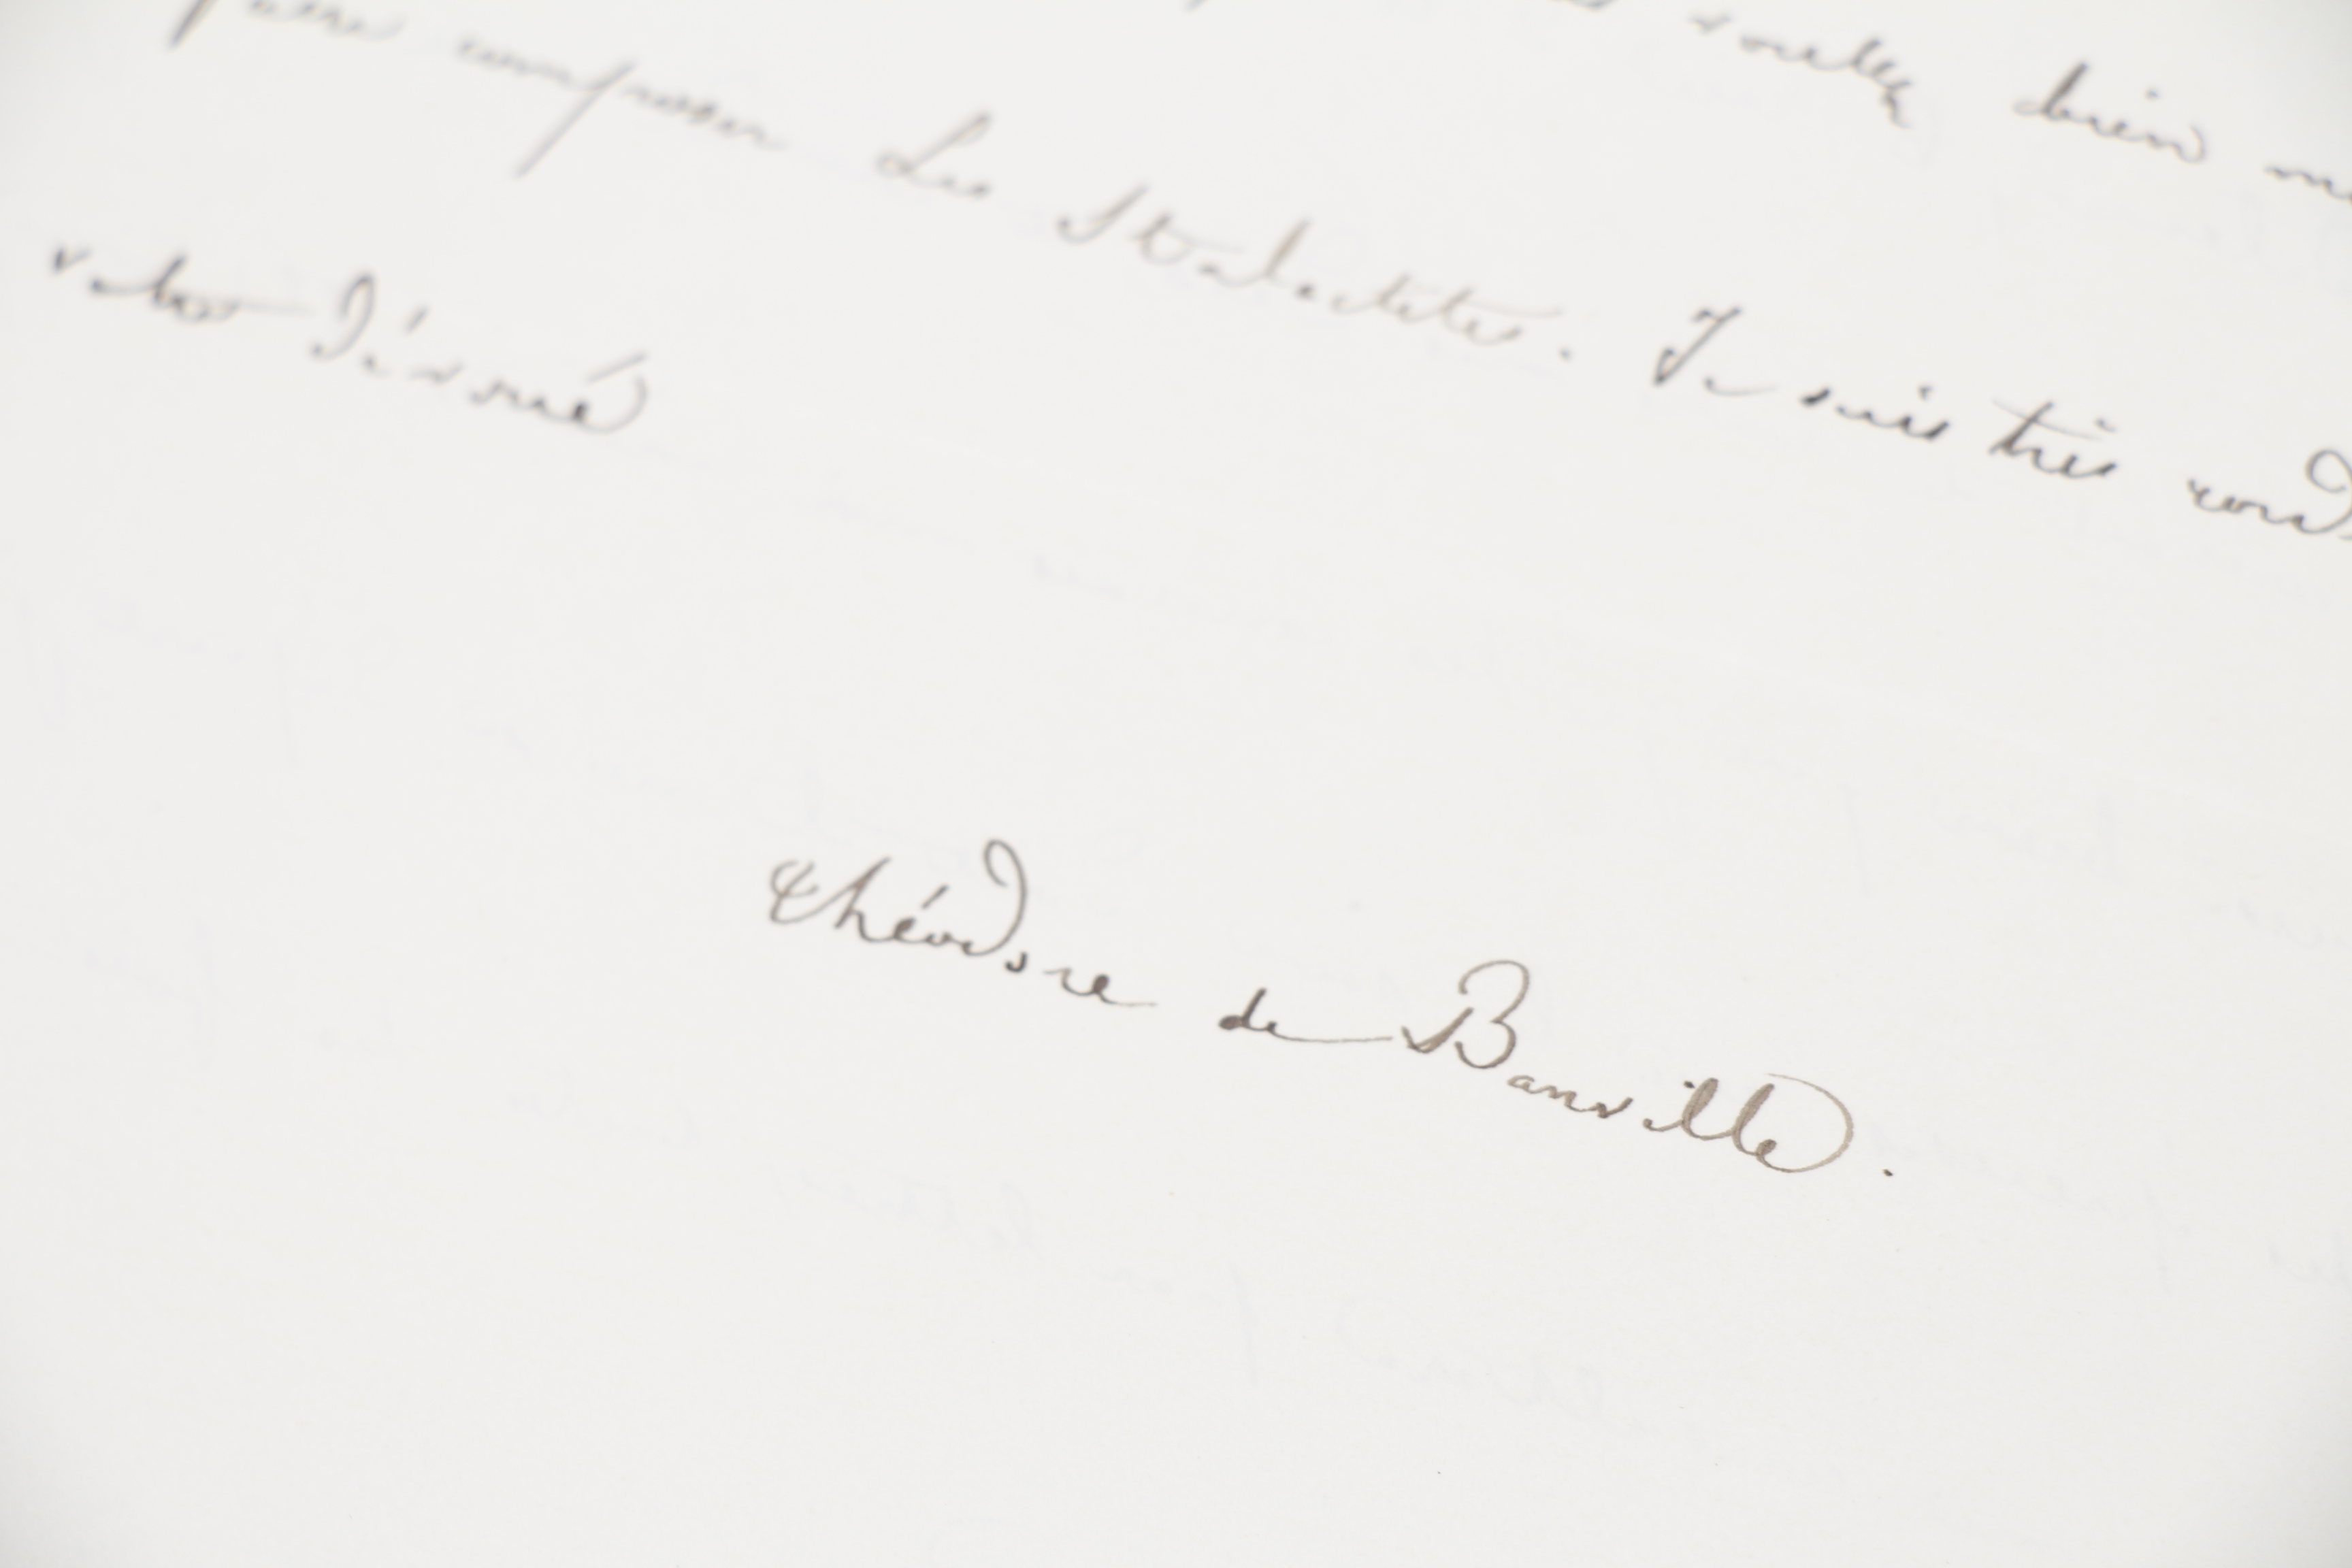 voulez bien me
faire composer Les Stalactites. Je suis très cord
votre dévoué
Théodore de Banville.